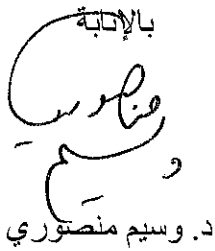 بالإنابة
د. وسيم منصوري